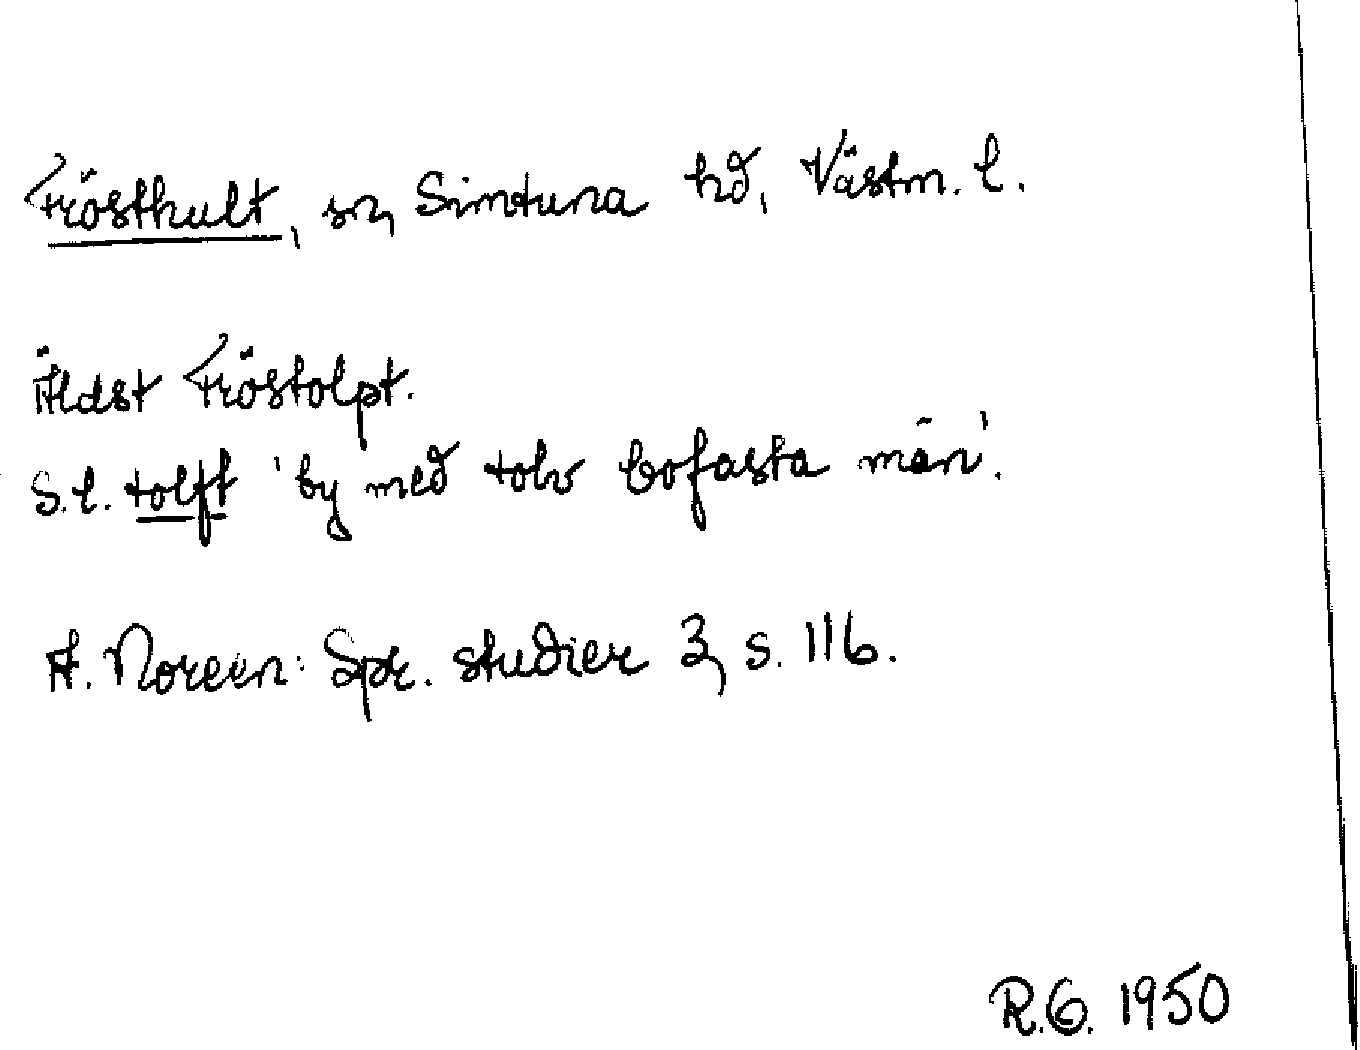 Frösthult, sn, Simtuna hd, Västm. l.
Äldst Fröstolpt.
S.l. tolft 'by med tolv bofasta män'.
A. Noreen: Spr. studier 3, s. 116.
R.G. 1950